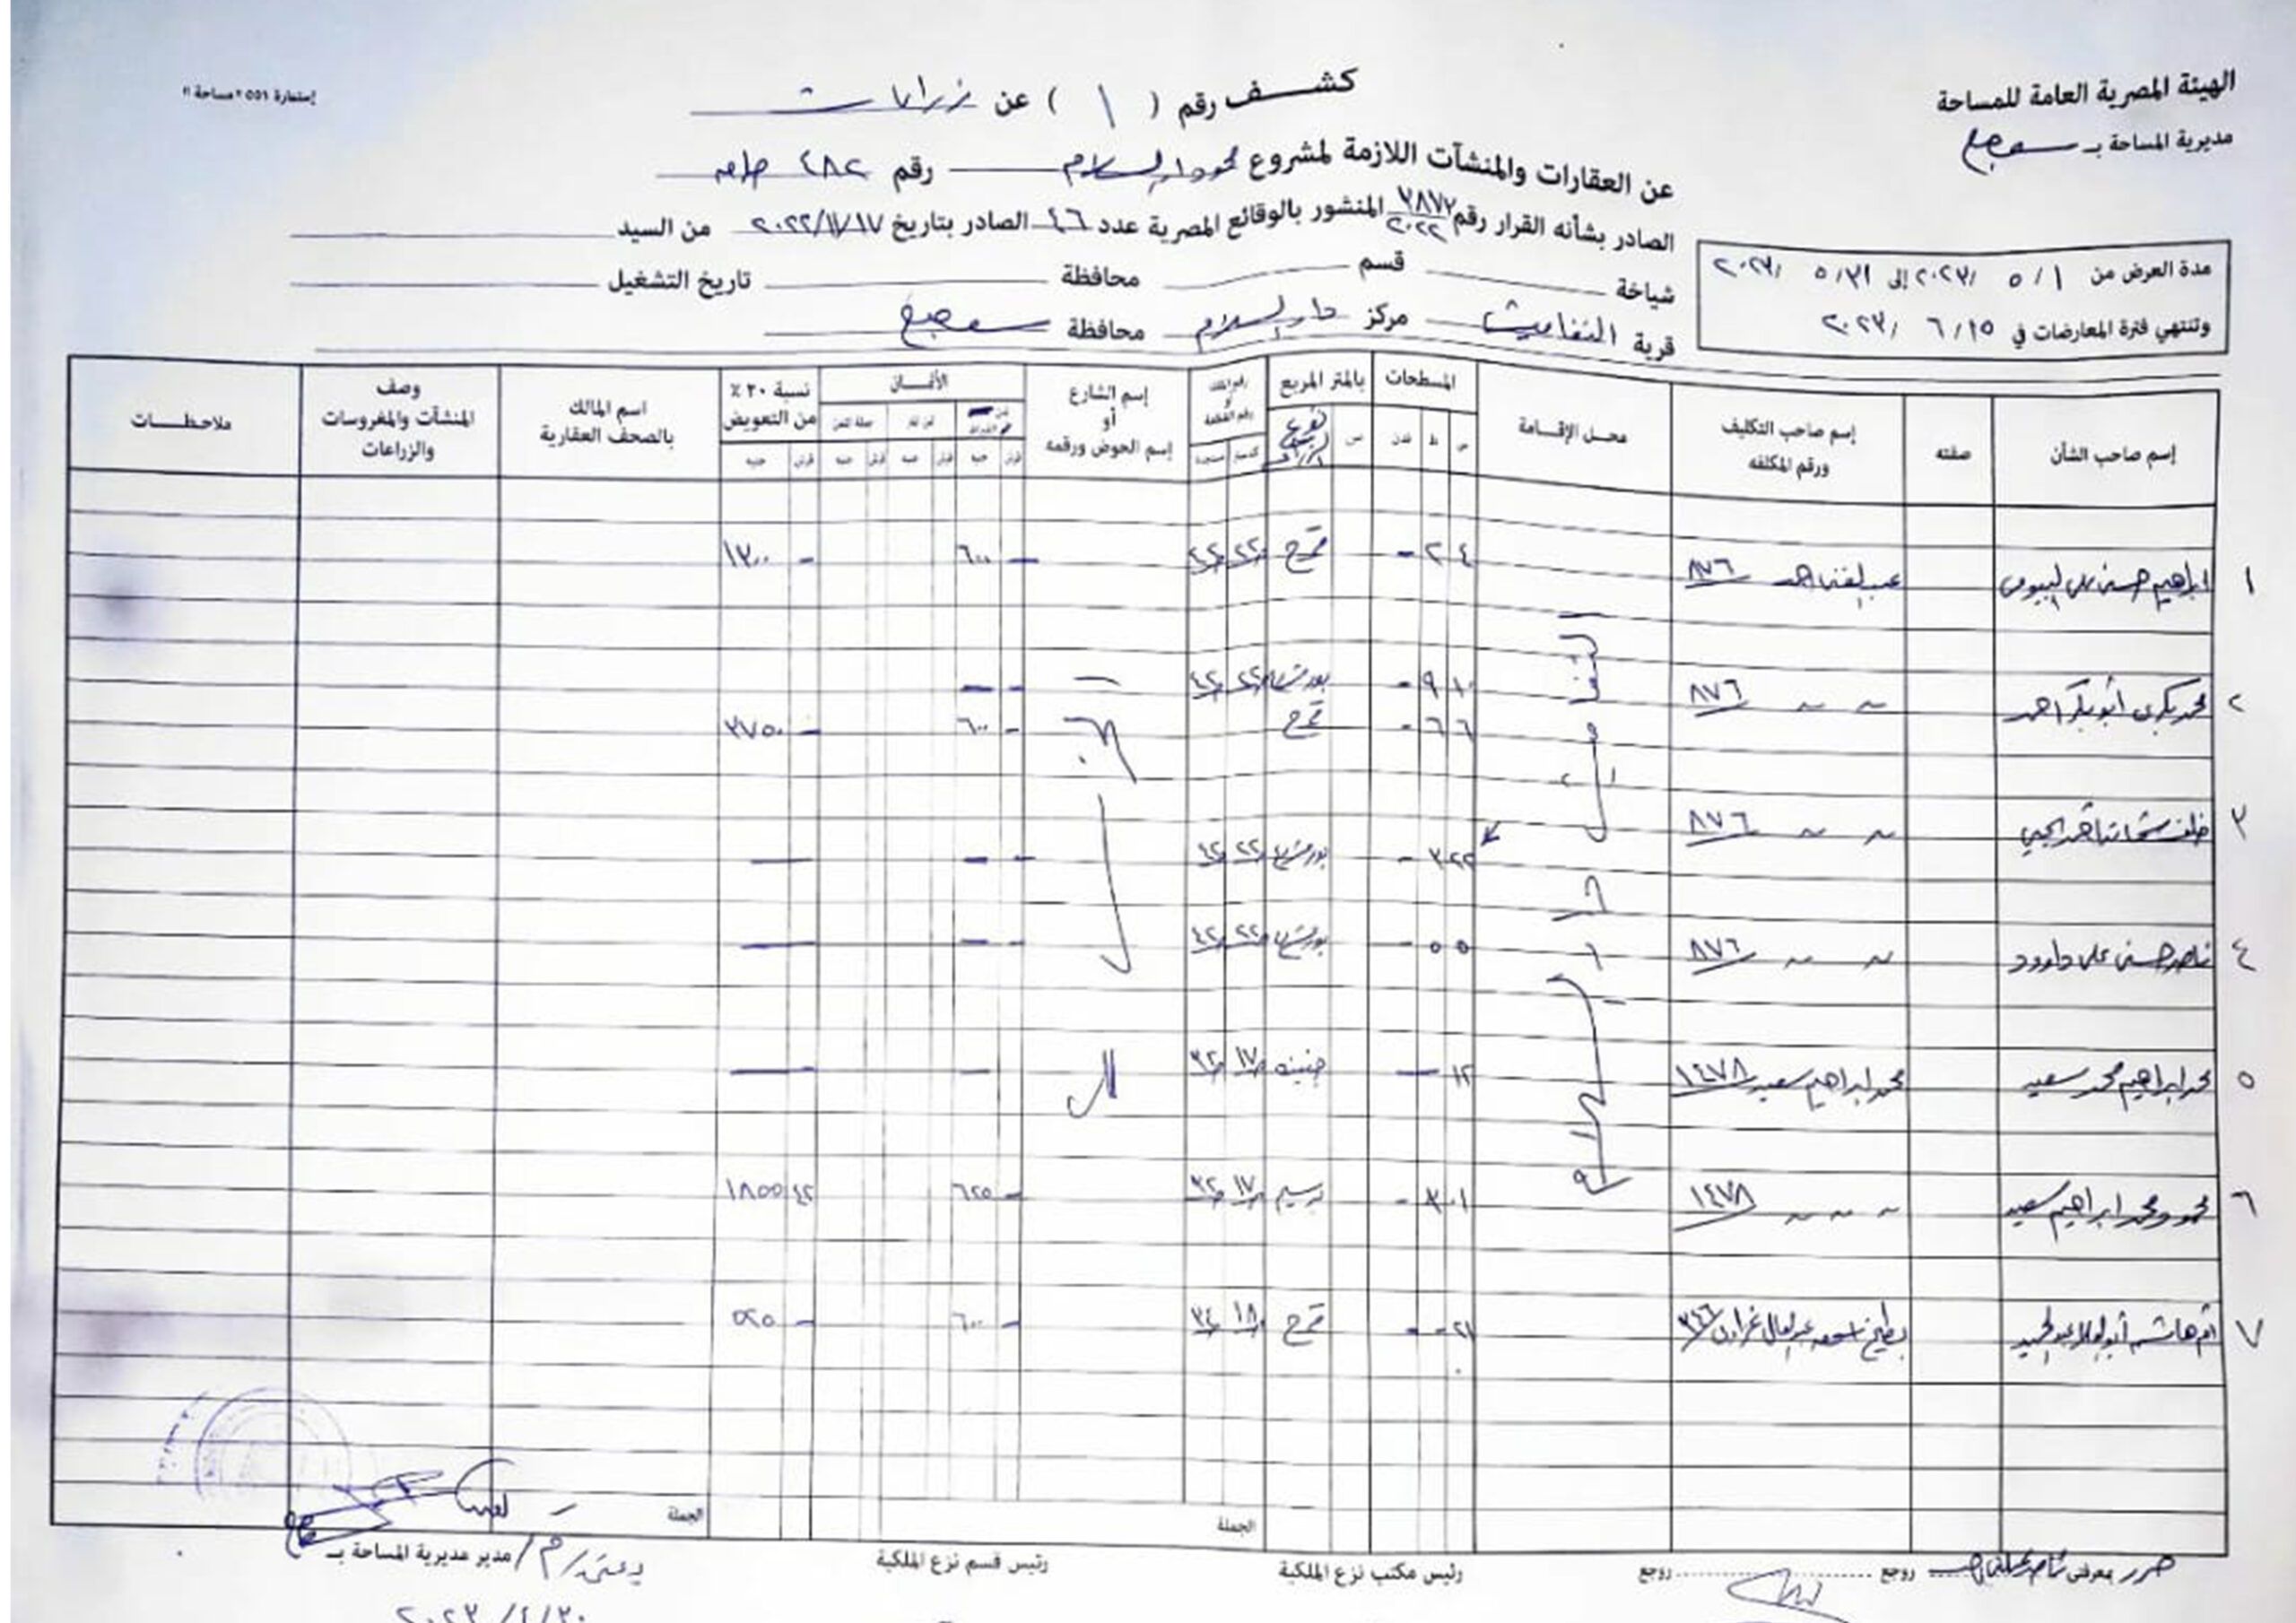 الهيئة المصرية العامة للمساحة
مديرية المساحة بـ سوهاج
إستمارة ٥٥١ "مساحة"
كشف رقم ( ١ ) عن زراعات
عن العقارات والمنشآت اللازمة لمشروع محور دار السلام رقم ٤٨٢
الصادر بشأنه القرار رقم ٣٨٧٢ / ٢٠٢٢ المنشور بالوقائع المصرية عدد ٤٦ الصادر بتاريخ ٢٠٢٢/١١/١٧ من السيد
شياخة قسم محافظة تاريخ التشغيل
قرية النغاميش مركز دار السلام محافظة سوهاج
مدة العرض من ٥/١ /٢٠٢٣ إلى ٥/٣١ /٢٠٢٣
وتنتهي فترة المعارضات في ٦/١٥ /٢٠٢٣
إسم صاحب الشأن صفته إسم صاحب التكليف ورقم المكلفه محل الإقامة المسطحات بالمتر المربع إسم الشارع أو إسم الحوض ورقمه الأثمان نسبة ٣٠ ٪ من التعويض اسم المالك بالصحف العقارية وصف المنشآت والمغروسات والزراعات ملاحظات
س ط فدن س نوع قرش جنيه قرش جنيه قرش جنيه قرش جنيه
١ ابراهيم حسنى على عبد الغنى احمد ٨٧٦ ٤ ٢ - قمح ٢٢ ٤٢ - ٦٠٠ - ١٣٠٠
٢ محمد بكرى أبو بكر احمد ~ ~ ٨٧٦ ١٠ ٩ - بور ٢٢ ٤٢ - -
٦ ٦ - قمح - ٦٠٠ - ٣٧٥٠
٣ خلف ~ ~ ٨٧٦ ٢٢ ٣ - بور ٢٢ ٤٢ - - -
٤ ناصر حسنى على داوود ~ ~ ٨٧٦ ٥ ٥ - بور ٢٢ ٤٢ - - -
٥ محمد ابراهيم محمد سعيد محمد ابراهيم سعيد ١٤٧٨ ١٢ - جنينه ١٧ ٣٢ - -
٦ محمود محمد ابراهيم سعيد ~ ~ ~ ١٤٧٨ ١ ٣ - برسيم ١٧ ٣٢ - ٦٢٥ ٤٢ ١٨٥٥
٧ أم هاشم أبو العلا عبد الحميد ٣٤٦ ٢١ - - قمح ١٨ ٣٤ - ٦٠٠ - ٥٢٥
الجملة الجملة
حرر بمعرفتى روجع روجع رئيس مكتب نزع الملكية رئيس قسم نزع الملكية يعتمد / مدير مديرية المساحة بـ
٢٠٢٣/٤/٣٠